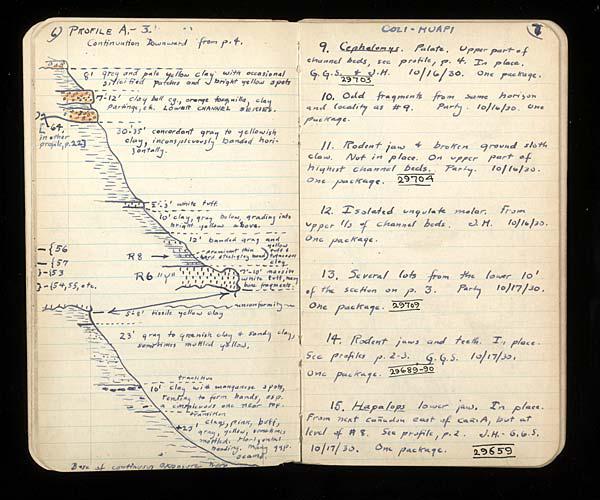 6) PROFILE A.-3.
Continuation Downward from p.4.
8' grey and pale yellow clay with occasional
silicified patches and bright yellow spots
7'-12' clay ball cg, orange
clay
partings, etc. LOWEST CHANNEL
64,
in other
profile, p.22]
30-35' concordant gray to yellowish
clay, inconspicuously banded hori-
zontally.
white tuff.
10' clay, gray below, grading into
bright yellow above.
12' banded gray and
yellow
prominent thin
tuff &
clay.
R8
R6
7'-10' massive
white tuff, many
bone fragments.
{56
{57
}-{53
}-{54, 55, etc.
unconformity
5-6' fissile yellow clay
23' gray to greenish clay & sandy clay,
sometimes mottled yellow.
transition
10' clay with manganese spots,
tending to form bands, esp.
a conspicuous one near top.
transition
±25' clays, pink, buff,
gray, yellow, sometimes
mottled. Horizontal
banding. Many gyp.
seams.
Base of continuous exposure here
COLI-HUAPI
7
9. Cephalomys. Palate. Upper part of
channel beds, see profile, p. 4. In place.
G.G.S. & J.H. 10/16/30. One package.
29703
10. Odd fragments from same horizon
and locality as #9. Party. 10/16/30. One
package.
11. Rodent jaw & broken ground sloth
claw. Not in place. On upper part of
highest channel beds. Party. 10/16/30.
One package. 29704
12. Isolated ungulate molar. From
upper 1/3 of channel beds. J.H. 10/16/30.
One package.
13. Several lots from the lower 10'
of the section on p. 3. Party 10/17/30.
One package. 29709
14. Rodent jaws and teeth. In place.
See profiles p. 2-3. G.G.S. 10/17/30.
One package. 29689-90
15. Hapalops lower jaw. In place.
From next cañadon east of cañ. A, but at
level of #8. See profile, p. 2. J.H.-G.G.S.
10/17/30. One package. 29659